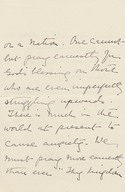 on a Nation. One cannot
but pray earnestly for
God's blessing on those
who are even imperfectly
struggling upwards.
There is much in the
world at present to
cause anxiety. We
must pray more earnestly
than ever "Thy Kingdom